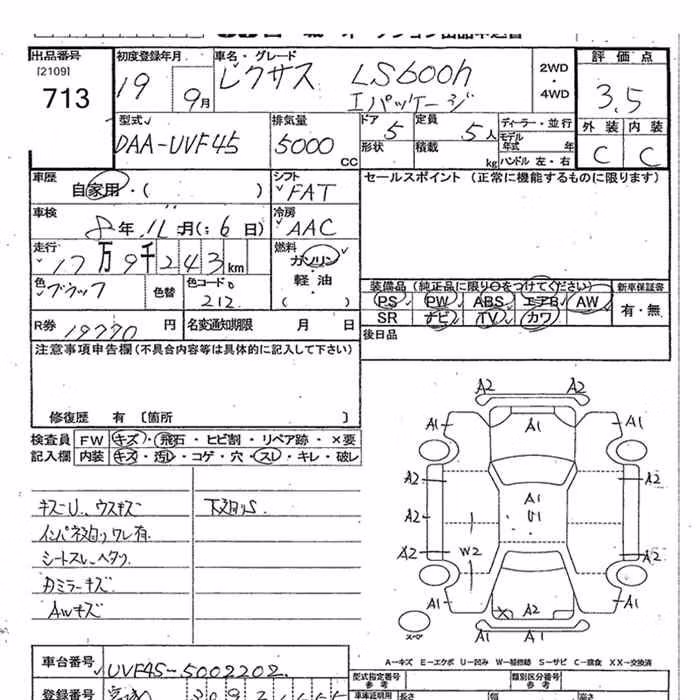 出品番号 [2109] 713
初度登録年月 19 9月
車名・グレード レクサス LS600h
Iパッケージ
2WD・4WD
評価点 3.5
外装 C 内装 C
型式 DAA-UVF45
排気量 5000 CC
ドア 5 形状
定員 5人 積載 kg
ディーラー・並行
モデル年式 年
ハンドル 左・右
車歴 自家用・( )
シフト FAT
セールスポイント (正常に機能するものに限ります)
車検 8年11月(:6日)
冷房 AAC
走行 17万9千243km
燃料 ガソリン 軽油 ( )
色 ブラック 色替
色コードo 212
装備品 (純正品に限り○をつけてください) 新車保証書
PS PW ABS エアB AW 有・無
SR ナビ TV カワ
R券 19770円 名変通知期限 月 日
後日品
注意事項申告欄 (不具合内容等は具体的に記入して下さい)
修復歴 有 〔箇所 〕
検査員 FW キズ・飛石・ヒビ割・リペア跡・×要
記入欄 内装 キズ・汚レ・コゲ・穴・スレ・キレ・破レ
キズU、ウスキズ
インパネ廻りワレ有
シートスレ、ヘタリ
カミラーキズ
AWキズ
下廻りS
A2 A2
A1 A1 A1
A2 A1 A2
A2 U1
A2 W2 A2
A1 X A2 A1
スペア
A－キズ E－エクボ U－凹み W－補修跡 S－サビ C－腐食 XX－交換済
車台番号 UVF45-5002202
型式指定番号 参考 類別区分番号 参考
登録番号
車庫証明用 長さ 幅 高さ